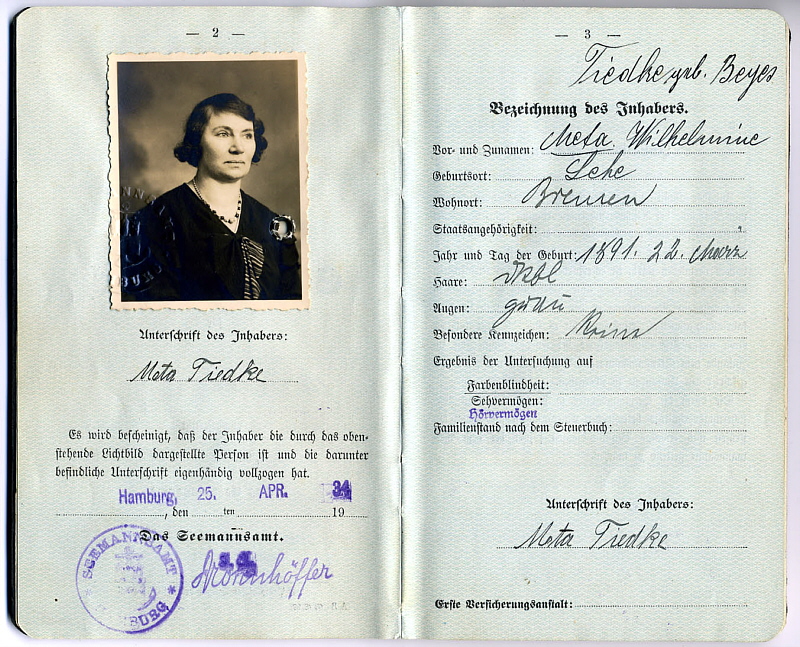 — 2 —
Unterschrift des Inhabers:
Meta Tiedke
Es wird bescheinigt, daß der Inhaber die durch das oben-
stehende Lichtbild dargestellte Person ist und die darunter
befindliche Unterschrift eigenhändig vollzogen hat.
Hamburg, 25. APR. 34
, den ten 19
Das Seemannsamt.
SEEMANNSAMT
BURG
— 3 —
Tiedke geb. Beyes
Bezeichnung des Inhabers.
Vor- und Zunamen: Meta Wilhelmine
Geburtsort: Lehe
Wohnort: Bremen
Staatsangehörigkeit:
Jahr und Tag der Geburt: 1891. 22. März
Haare: dkbl
Augen: grau
Besondere Kennzeichen: Keine
Ergebnis der Untersuchung auf
Farbenblindheit:
Sehvermögen:
Hörvermögen
Familienstand nach dem Steuerbuch:
Unterschrift des Inhabers:
Meta Tiedke
Erste Versicherungsanstalt: